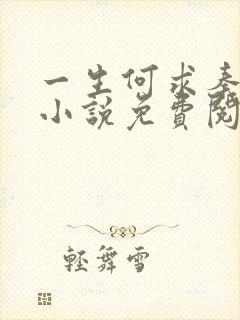 一生何求秦
小說免費閱
輕舞雪